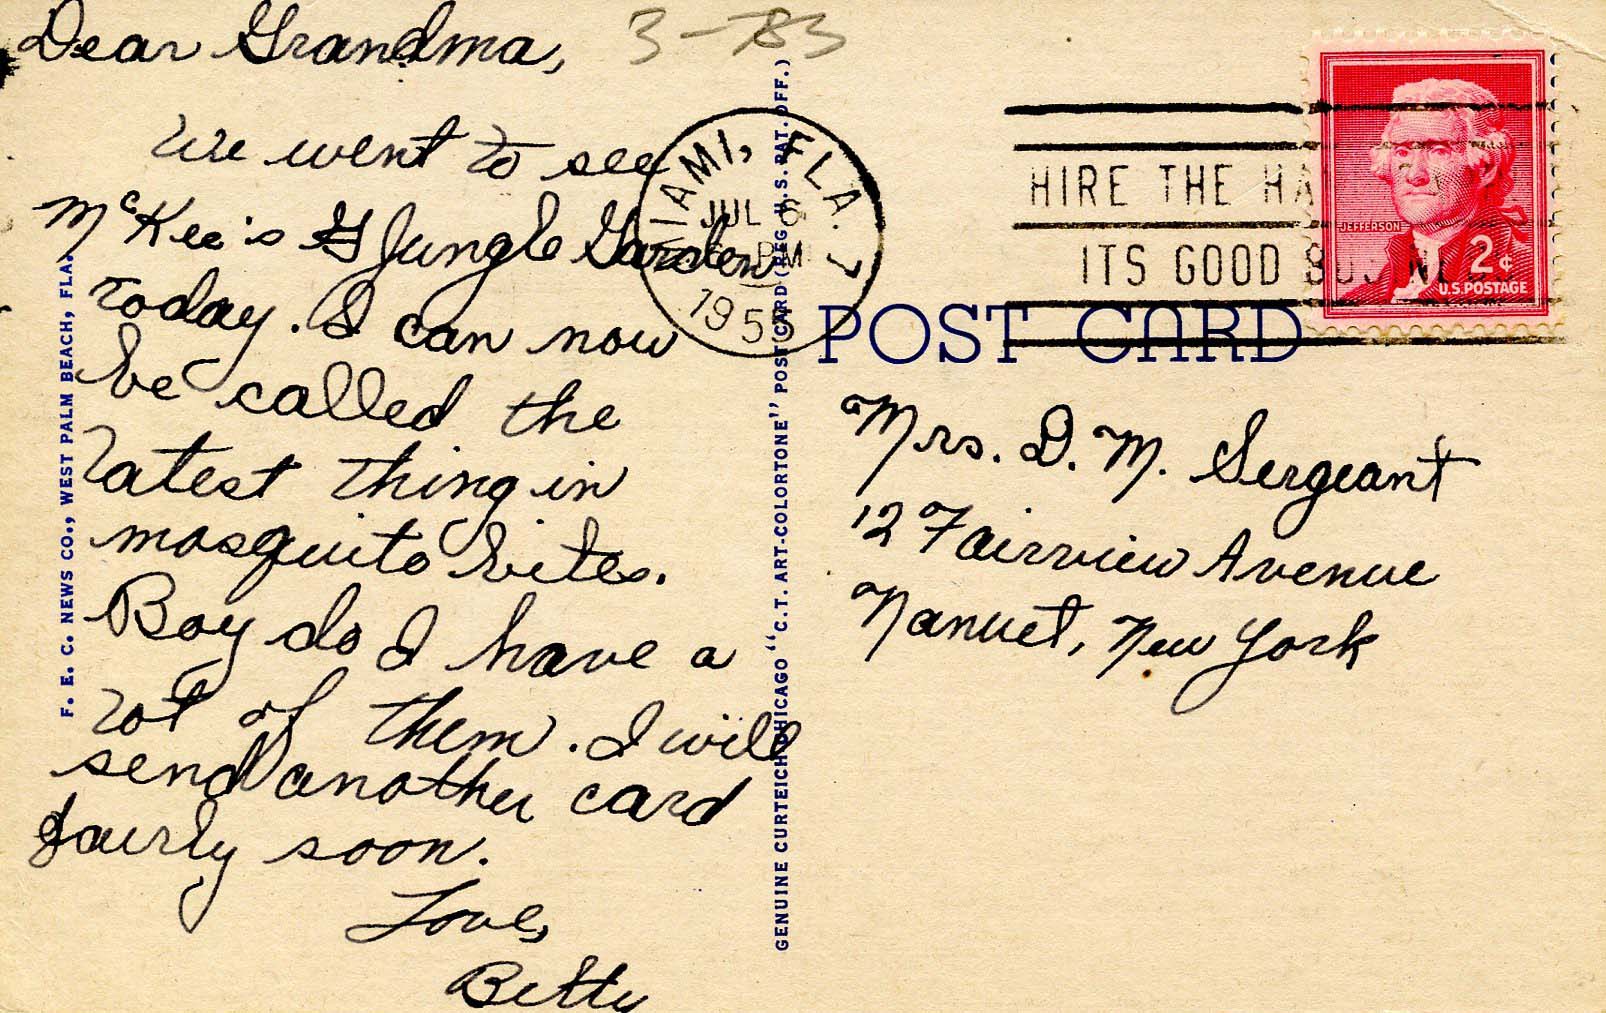 Dear Grandma,
3-783
We went to see
McKee's Jungle Garden
today. I can now
be called the
latest thing in
mosquito bites.
Boy do I have a
lot of them. I will
send another card
fairly soon.
Love,
Betty
F. E. C. NEWS CO., WEST PALM BEACH, FLA.
GENUINE CURTEICH-CHICAGO "C.T. ART-COLORTONE" POST CARD (REG. U.S. PAT. OFF.)
MIAMI, FLA.
JUL 6
PM
1955
HIRE THE HA
ITS GOOD BUSINESS
JEFFERSON
2¢
U.S. POSTAGE
POST CARD
Mrs. D. M. Sergeant
12 Fairview Avenue
Nanuet, New York